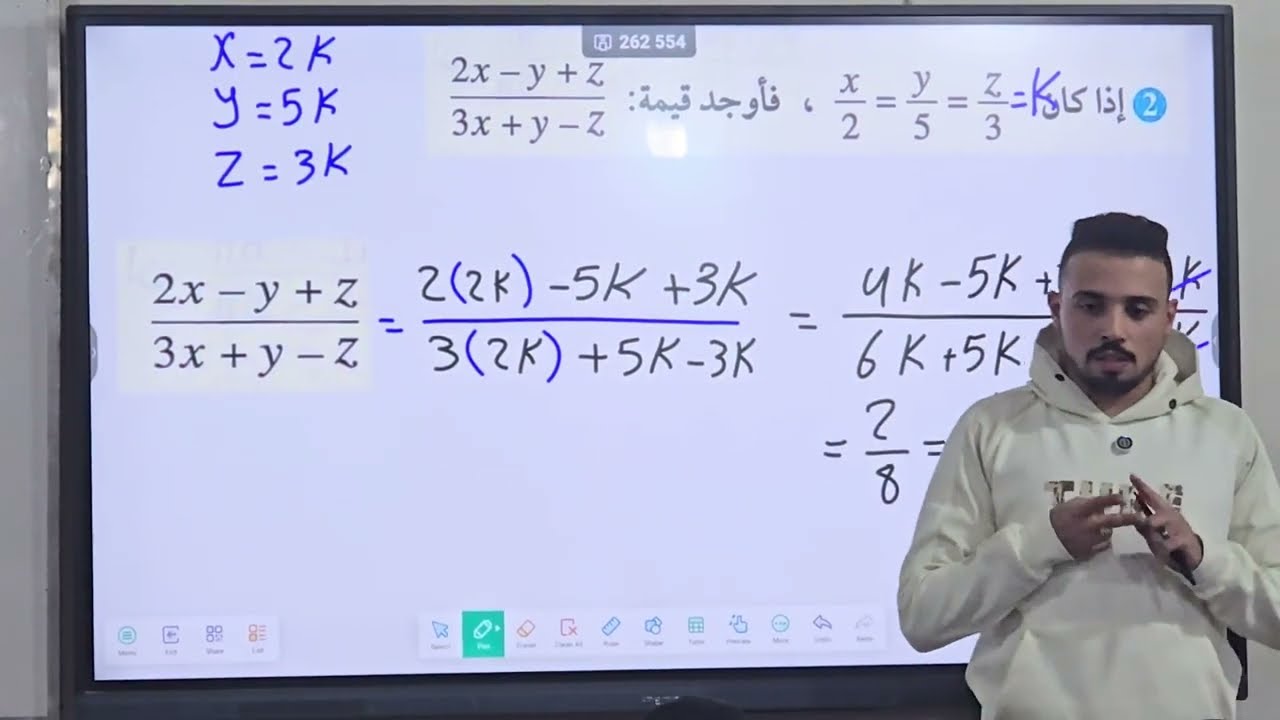 262 554
2 إذا كان x/2 = y/5 = z/3 = K ، فأوجد قيمة: (2x – y + z)/(3x + y – z)
X = 2K
y = 5K
Z = 3K
(2x – y + z)/(3x + y – z) = (2(2K) – 5K + 3K)/(3(2K) + 5K – 3K) = 4K – 5K +
6K + 5K
= 2/8 =
Menu Exit Share List Select Pen Eraser Clear All Ruler Shape Table More Undo Redo